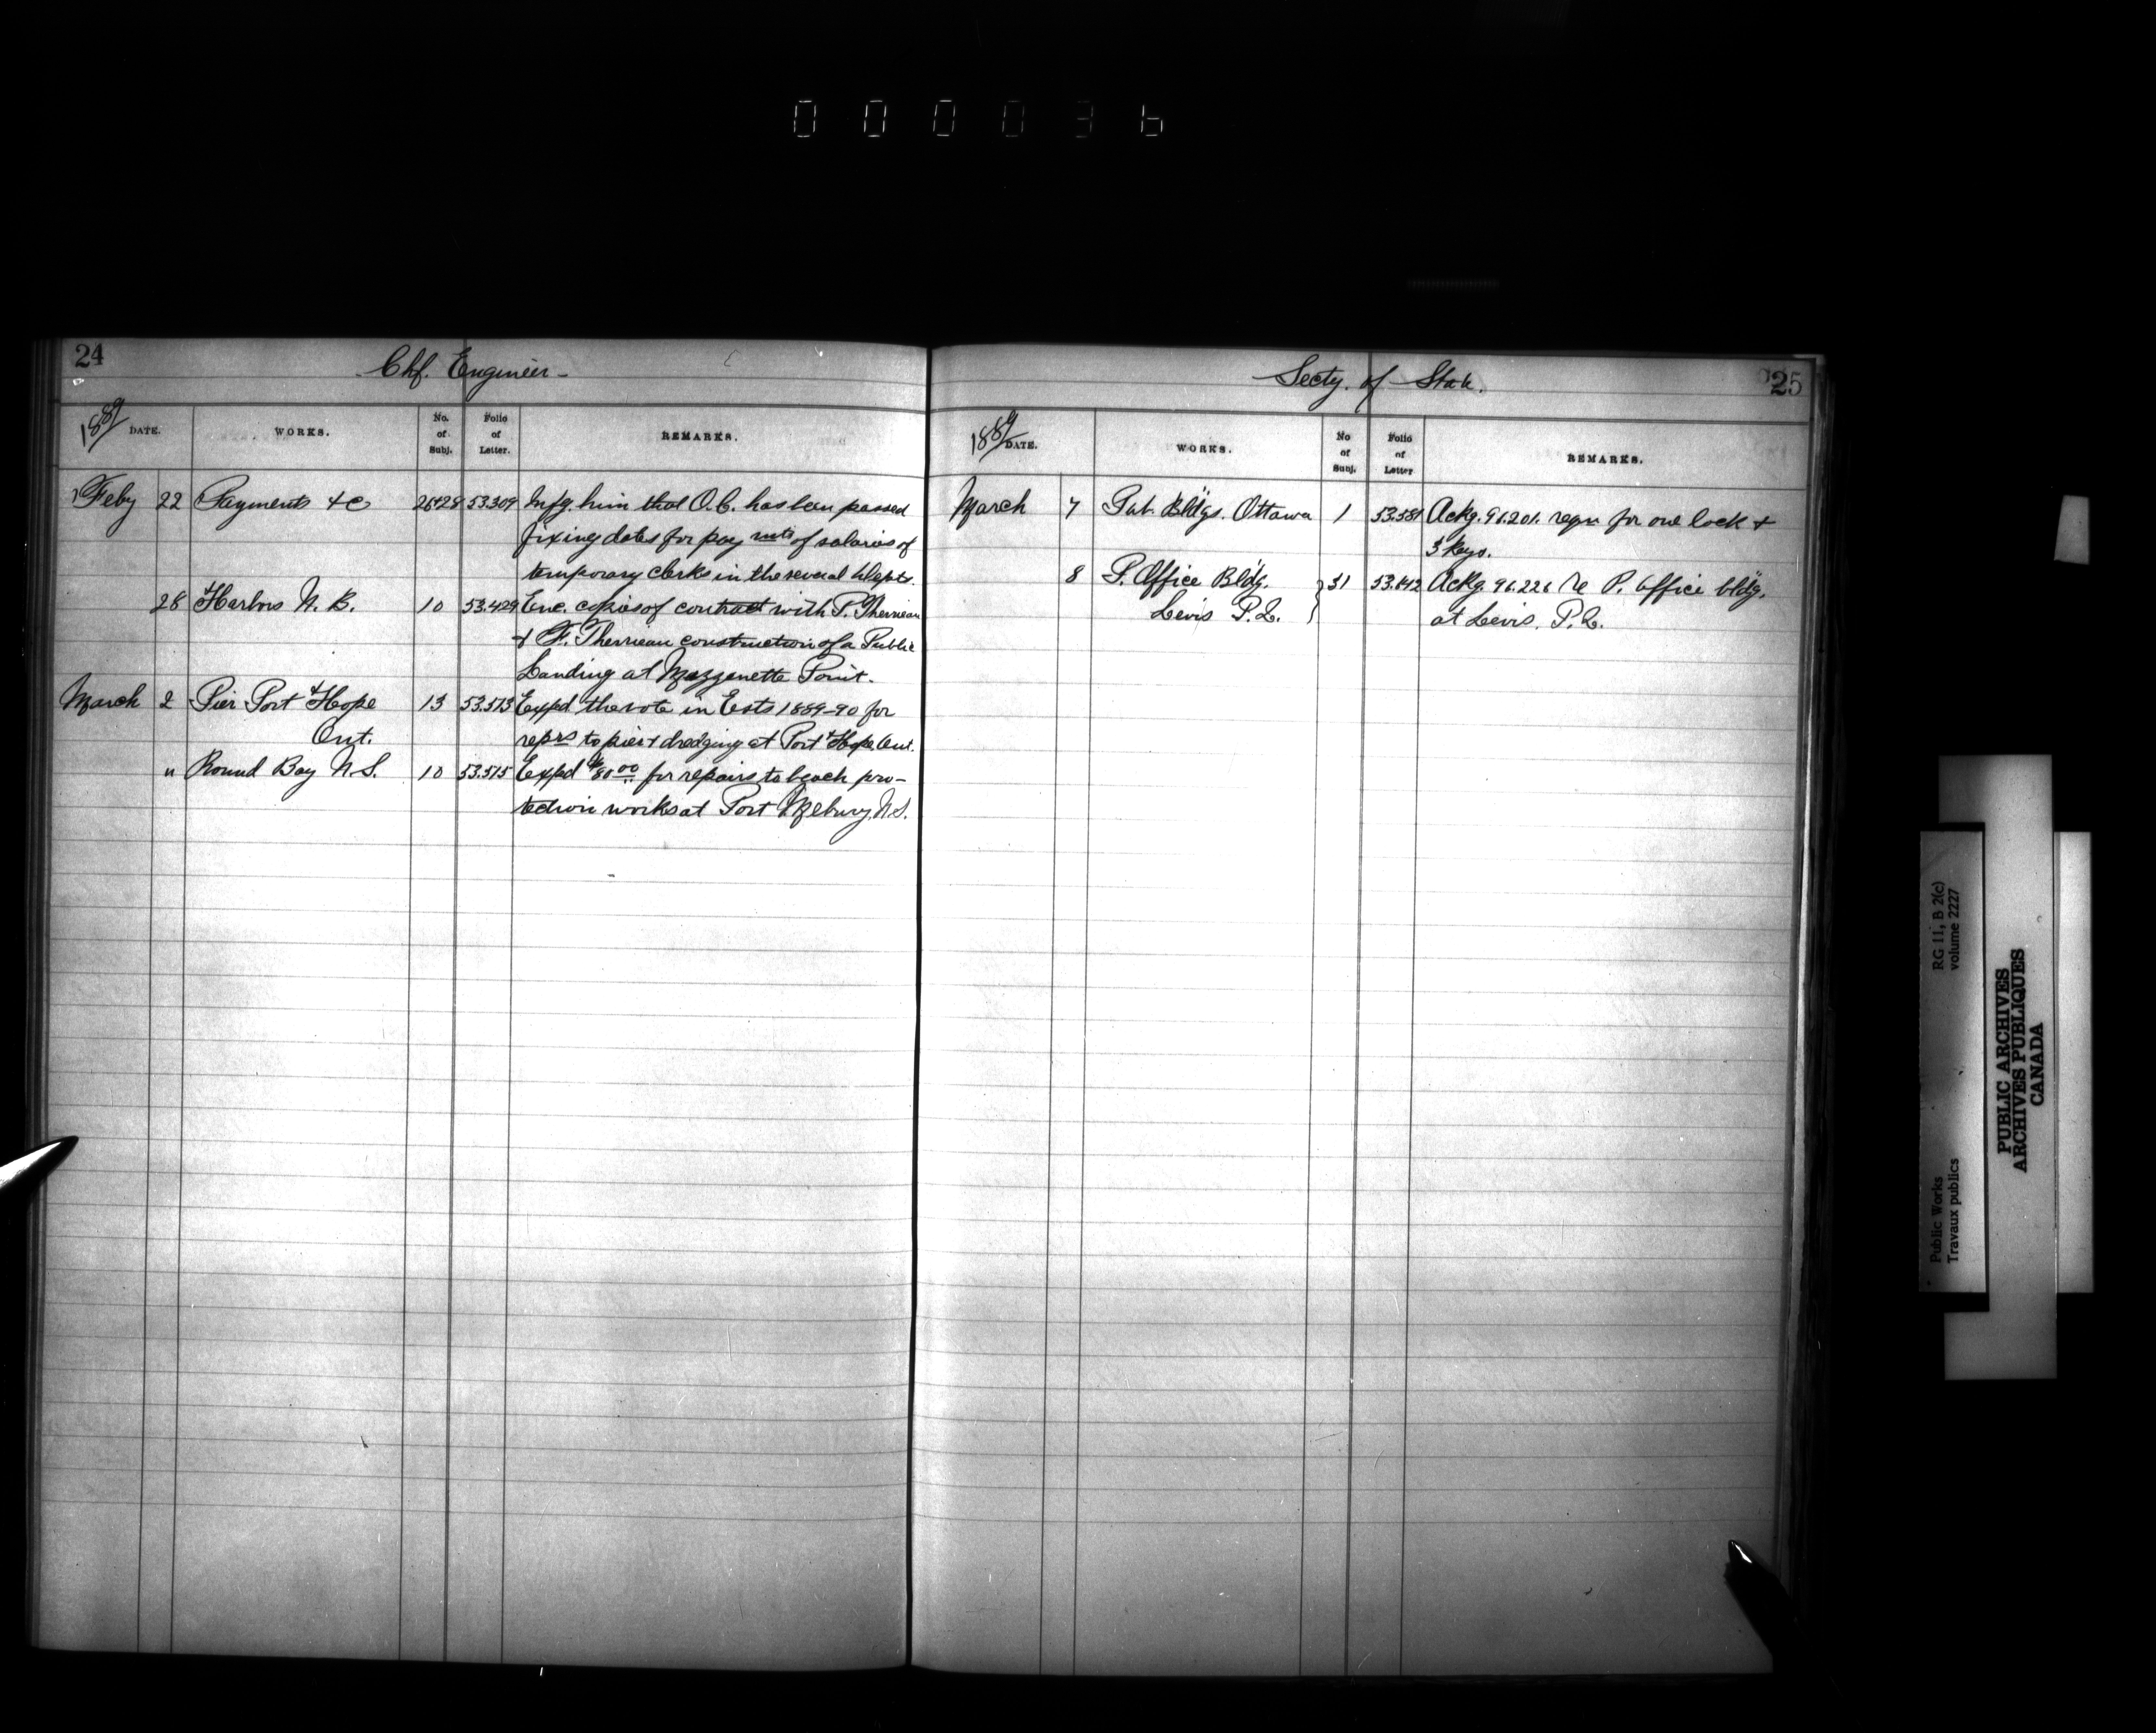 000036
24
Chf. Engineer
1889 DATE. WORKS. No. of Subj. Folio of Letter. REMARKS.
Feby 22 Payments &c 26&28 53.309 Infg. him that O.C. has been passed
fixing dates for pay mts of salaries of
temporary clerks in the several Depts.
28 Harbors N. B. 10 53.429 Enc. copies of contract with P. Therrieau
& F. Therrieau construction of a Public
Landing at Mazzanette Point.
March 2 Pier Port Hope 13 53.513 Expd the vote in Ests 1889-90 for
Ont. reprs to pier & dredging at Port Hope Ont.
" Round Bay N.S. 10 53.515 Expd $80.00 for repairs to beach pro-
tection works at Port N.S.
Secty. of State.
25
1889 DATE. WORKS. No of Subj. Folio of Letter REMARKS.
March 7 Pub. Bldgs. Ottawa 1 53.581 Ackg. 96.201. reqn for one lock &
3 keys.
8 P. Office Bldg. 31 53.642 Ackg. 96.226 re P. Office bldg.
Levis P.Q. at Levis. P.Q.
RG 11, B 2(c)
volume 2227
Public Works
Travaux publics
PUBLIC ARCHIVES
ARCHIVES PUBLIQUES
CANADA